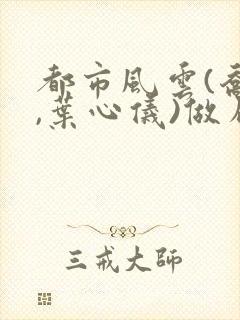 都市風雲(喬
,葉心儀)做
三戒大師